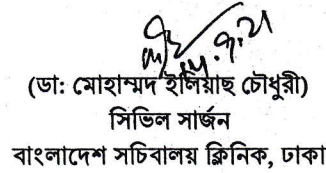 (ডা: মোহাম্মদ ইলিয়াছ চৌধুরী)
সিভিল সার্জন
বাংলাদেশ সচিবালয় ক্লিনিক, ঢাকা